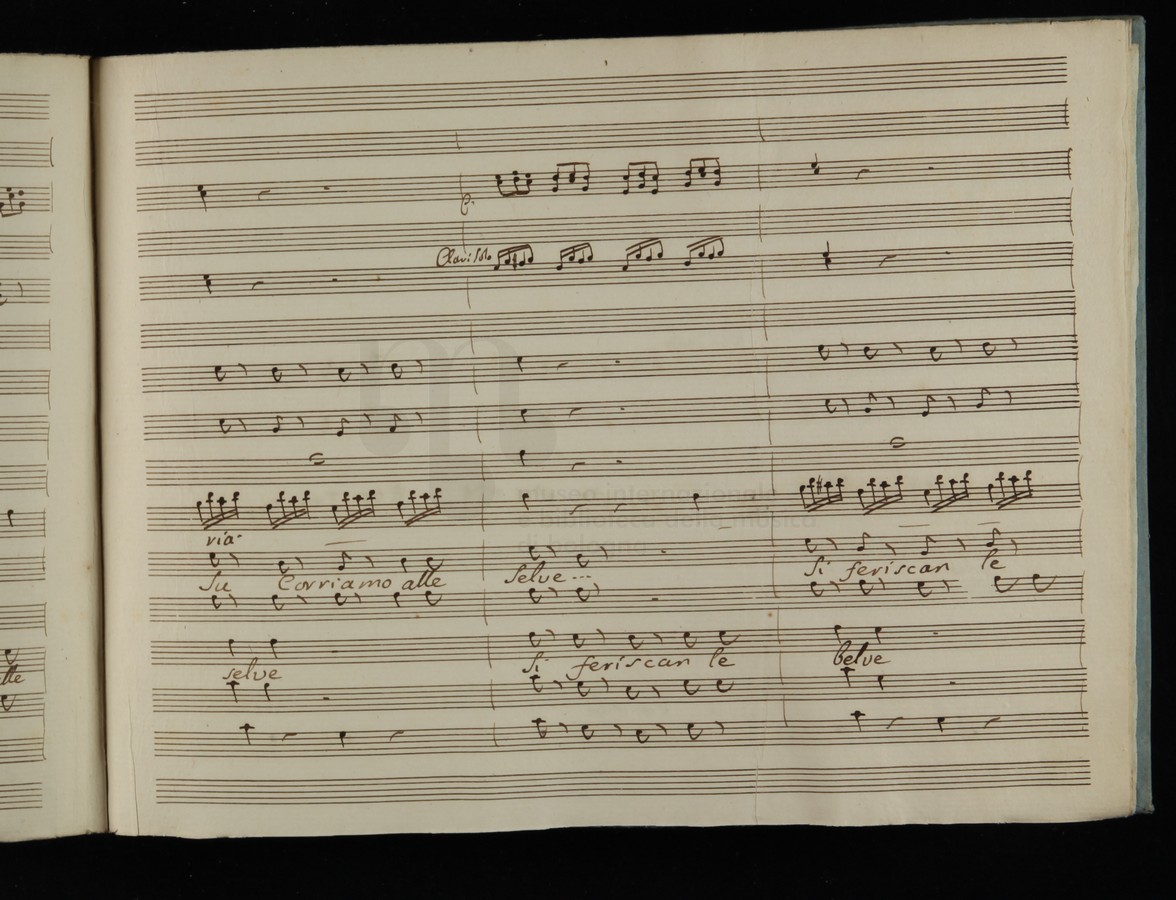 p.
Clari Soli
museo internazionale
e biblioteca della musica
di bologna
via
Su Corriamo alle selve... Si feriscan le
selve Si feriscan le belve